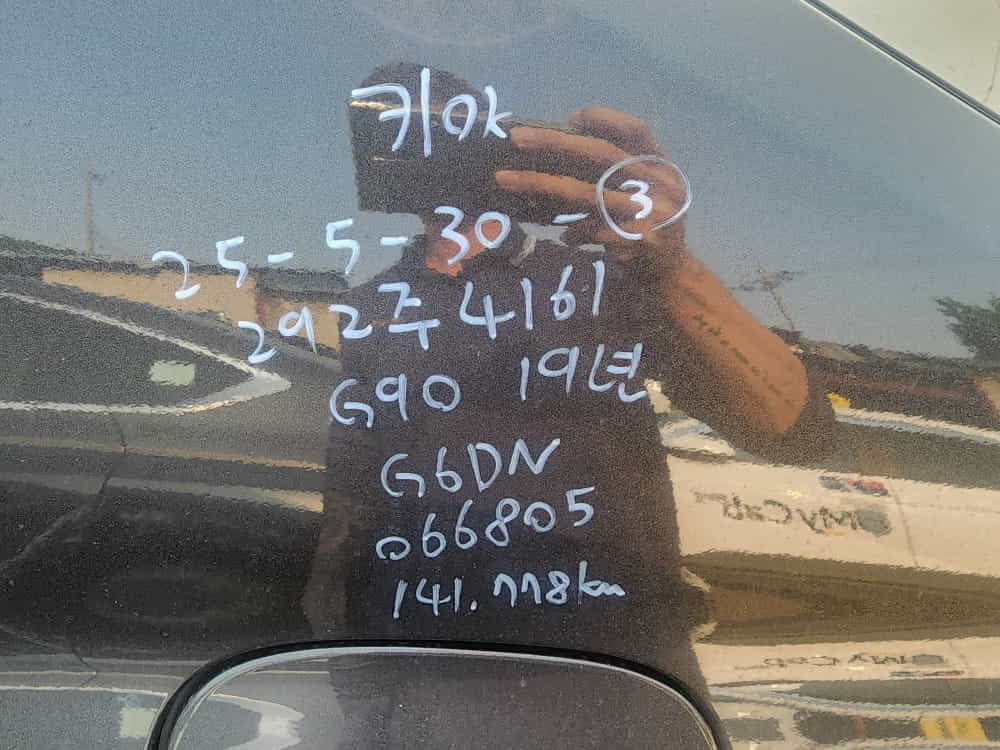 키ok
25-5-30-③
292주4161
G90 19년
G6DN
066805
141.778km